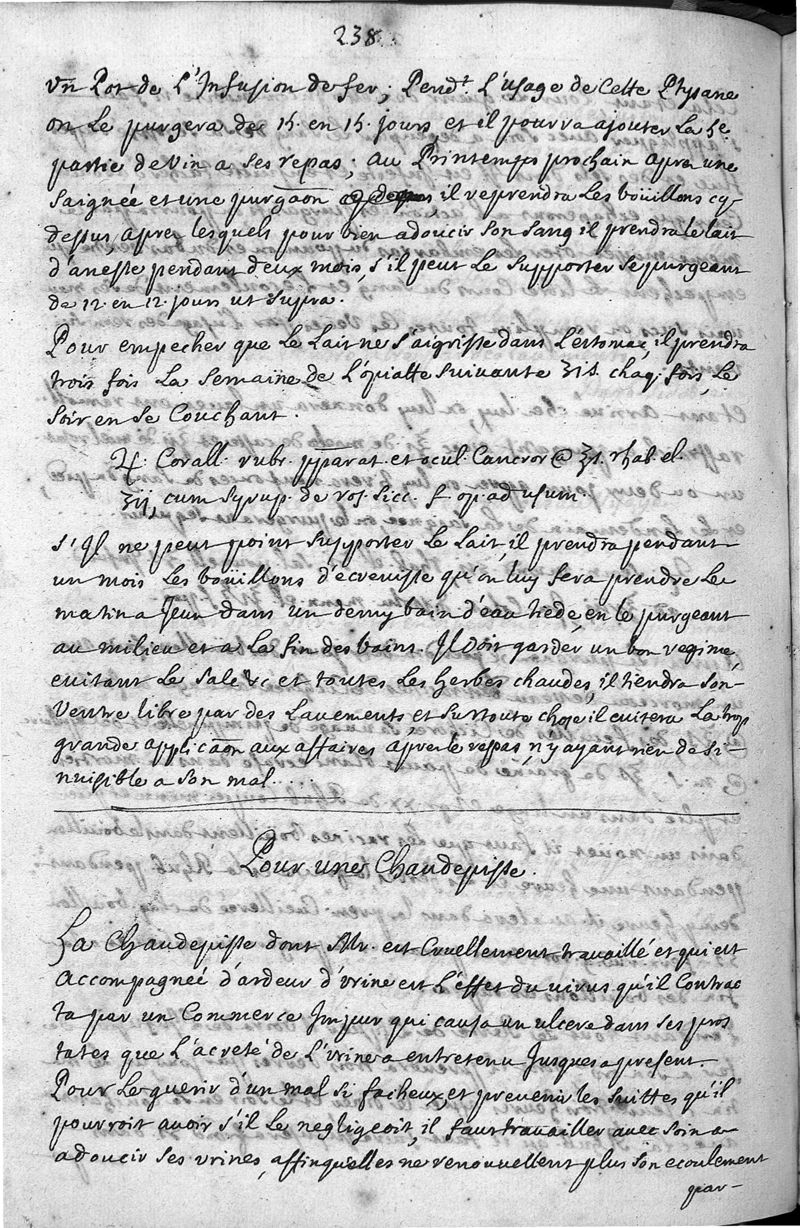 238.
un Pot de L'Infusion de fer; Pend.t L'usage de Cette Ptysane
on Le purgera de 15. en 15. jours, et il pourra ajouter La 5e
partie de vin a ses repas; au Printemps prochain apres une
saignée et une purgaōn il reprendra Les boüillons cy-
dessus, apres lesquels pour bien adoucir son sang il prendra le lait
d'anesse pendant deux mois, s'il peut Le supporter se purgeant
de 12. en 12. jours ut supra.
Pour empecher que Le Lait ne s'aigrisse dans L'estomac, il prendra
trois fois La semaine de L'opiatte suivante ʒi s. chaq. fois, Le
soir en se Couchant.
♃. Corall. rubr. pp̄parat. et ocul. Cancror @ ʒs. rhab. el.
ʒij, cum syrup. de ros. sicc. f. op. ad usum.
s'Il ne peut point supporter Le Lait, il prendra pendant
un mois Les boüillons d'écrevisse qu'on luy fera prendre Le
matin a Jeun dans un demy bain d'eau tiede, en le purgeant
au milieu et a La fin des bains. Il doit garder un bon regime,
evitant Le salé &c et toutes Les herbes chaudes, il tiendra son
Ventre libre par des Lavements et surtoute chose il evitera La trop
grande applicaōn aux affaires apres le repas, n'y ayant rien de si
nuisible a son mal....
Pour une Chaudepisse.
La Chaudepisse dont Mr. est Cruellement travaillé et qui est
accompagneé d'ardeur d'urine est L'effet du virus qu'il Contrac
ta par un Commerce Impur qui causa un ulcere dans ses pros
tates que L'acreté de L'urine a entretenu Jusques a present.
Pour Le guerir d'un mal si facheux, et prevenir les suittes qu'il
pourroit avoir s'il Le negligeoit, il faut travailler avec soin a
adoucir ses urines, affin qu'elles ne renouvellent plus son ecoulement
par-